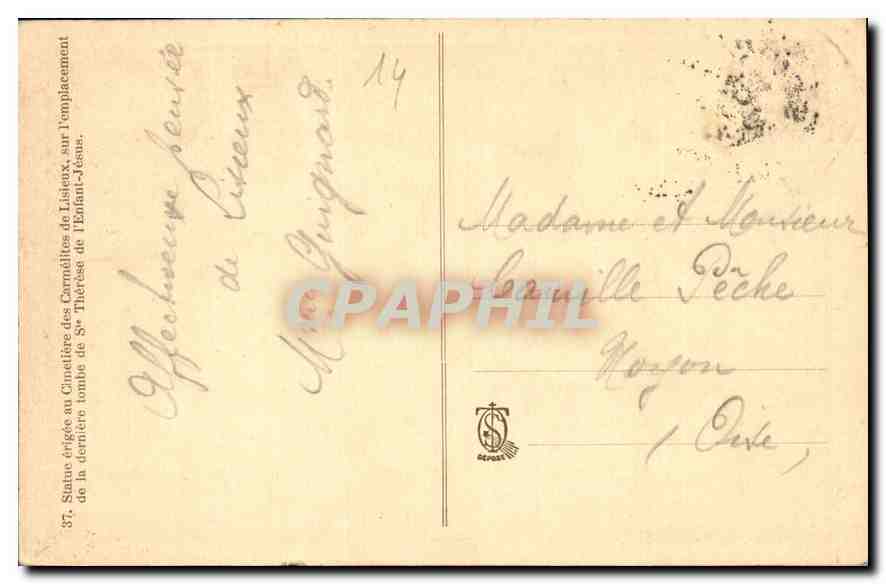 37. Statue érigée au Cimetière des Carmélites de Lisieux, sur l'emplacement
de la dernière tombe de Ste Thérèse de l'Enfant-Jésus.
Affectueuse pensée
de Lisieux
Mme Guignard.
14
Madame et Monsieur
Camille Pêche
Noyon
(Oise)
DEPOSE
CPAPHIL